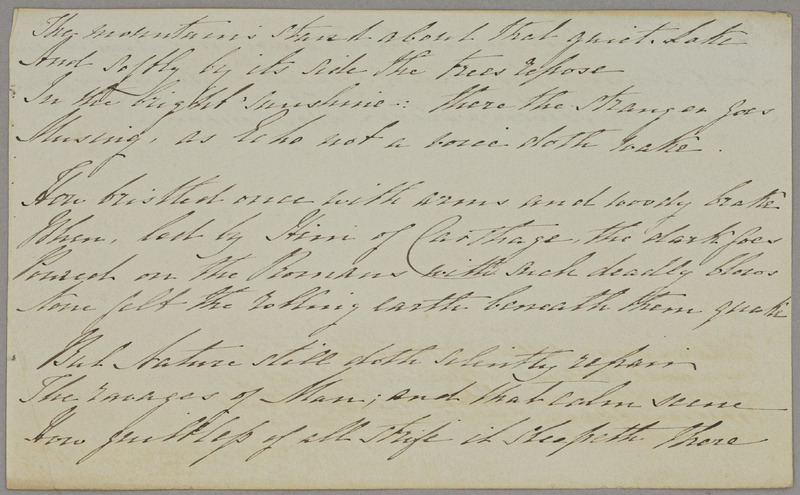 The mountains stand about that quiet Lake
And softly by its side the trees repose
In the bright sunshine: there the stranger goes
Musing, as Echo not a voice doth wake.
How bristled once with arms and woody brake
When, led by Him of Carthage, the dark foes
Poured on the Romans with such deadly blows
None felt the rolling earth beneath them quake
But Nature still doth silently repair
The ravages of Man; and that calm scene
How guiltless of all strife it sleepeth there